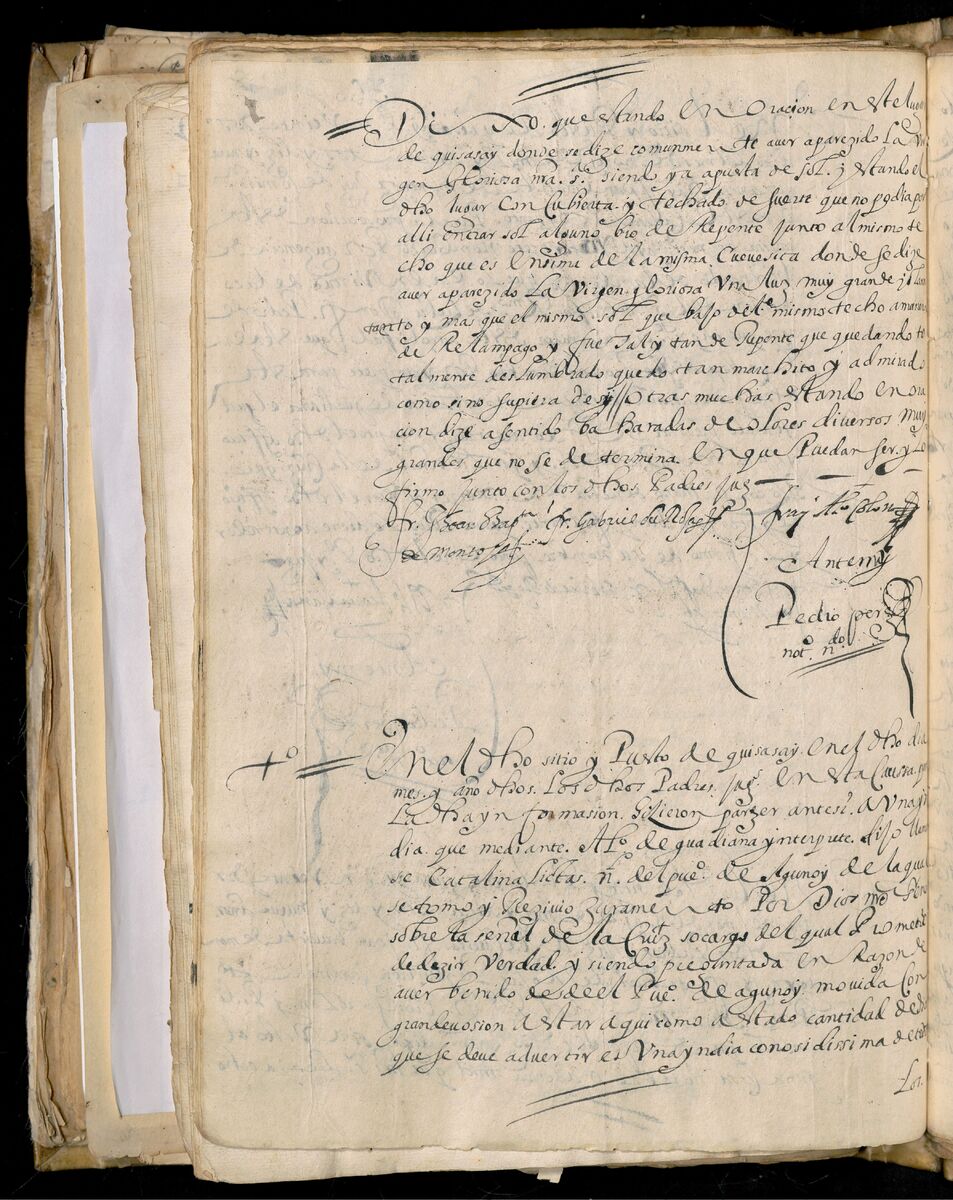 Dixo. que estando En oracion en este lugar
de quisasay donde se dize comunmente aver aparezido La Vir
gen gloriosa nra. sa. siendo ya apuesta de sol. y estando el
dho lugar con Cubierta. y techado de suerte que no podia por
alli entrar sol alguno bio de Repente junto al mismo te
cho que es Ensima de la misma Cuevesica donde se dize
aver aparezido La Virgen gloriosa Una luz muy grande
tanto y mas que el mismo sol que bajo del mismo techo a manera
de Relampago y fue tal y tan de Repente que quedando to
talmente deslumbrado quedo tan marchito y admirado
como si no supiera de sy // otras muchas estando en ora
cion dize a sentido baharadas de olores diversos muy
grandes que no se determina. En que Puedan ser. y Lo
firmo junto con los dhos Padres jues
fr. Joan Bapta. fr. Gabriel fray Colon
de Montoya
Antemy
Pedro perez
noto. ndo.
+o En el dho sitio y Puesto de quisasay. En el dho dia
mes. y año dhos. Los dhos Padres. jues. En esta Caussa. para
La dha ynformasion. hizieron parezer antesi. a Una yn
dia. que mediante. Alo. de guadiana ynterprete. dijo llamar
se Catalina na. del pueo. de Agunoy de la qual
se tomo y Rezivio zuramento Por Dios nro Señor
sobre la señal de la Cruz so cargo del qual Prometio
de dezir Verdad. y siendo preguntada en Razon de
aver benido desde el Pueo. de agunoy. movida Con
gran devosion a estar aqui como a estado cantidad de dias
que se deve advertir es Una yndia conosidissima de todos
Los.